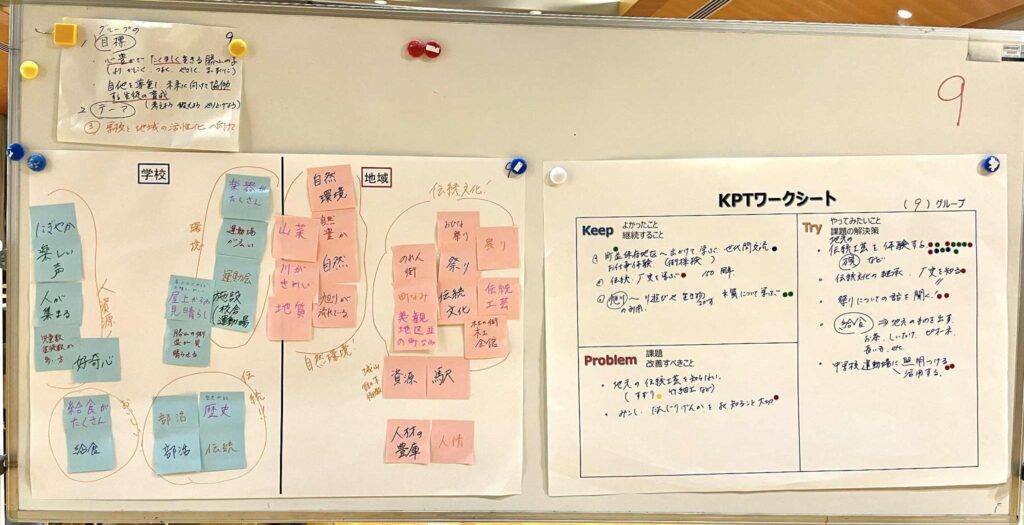 グループの
1 目標
9
・心豊かで たくましく生きる 勝山の子
(より かしこく、つよく、やさしく、
・自他を尊重し、未来に向けて協働
する生徒の育成
2 テーマ
③ 学校と地域の活性化へ向けて
9
学校
にぎやか
楽しい
声
人が
集まる
児童数
生徒数が
多い方
好奇心
人資源
環境
楽器が
たくさん
運動場
が広い
運動会
屋上からの
見晴らし
施設
校舎
運動場
勝山の街
並が見
晴らせる
給食が
たくさん
給食
おいしい
部活
部活
歴史
伝統
伝統!!
地域
9
自然
環境
山菜
自然
豊か
川が
きれい
自然
地質
旭川が
流れている
自然環境!
伝統文化!
おひな
祭り
祭り
のれん
街
町なみ
美観
地区
の町なみ
伝統
文化
伝統
工芸
木の街
木工
城山
資源
駅
人材の
豊庫
人情
KPTワークシート
(9)グループ
Keep よかったこと
継続すること
① 町並保存地区へ出かけて学ぶ 世代間交流
お仕事体験
② 伝統、歴史を学ぶ 100周年
③ 旭川
の利用
水質について学ぶ
Problem 課題
改善すべきこと
・地元の伝統工芸を知らない
(すずり 竹細工など)
・みこし、だんじり
Try やってみたいこと
課題の解決策
地元の
・伝統工芸を体験する
硯 など
・伝統文化の継承、歴史を知る
・祭りについての話を聞く
・給食 ⇒ 地元のものを出す
お茶、しいたけ、ピオーネ
・中学校運動場に照明つける
活用する